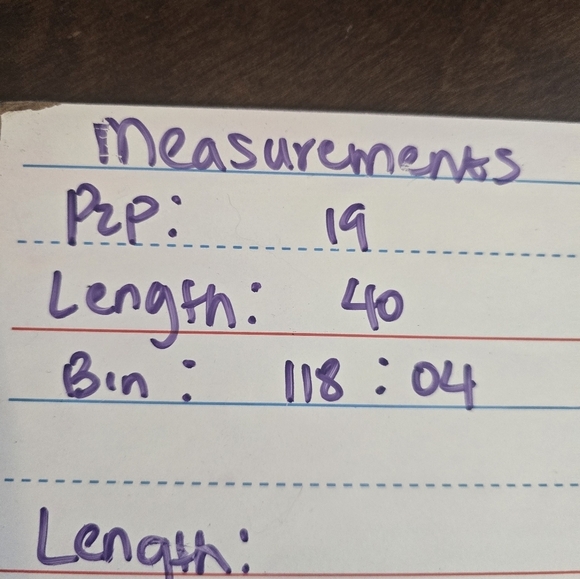 Measurements
P2P: 19
Length: 40
Bin: 118:04
Length: